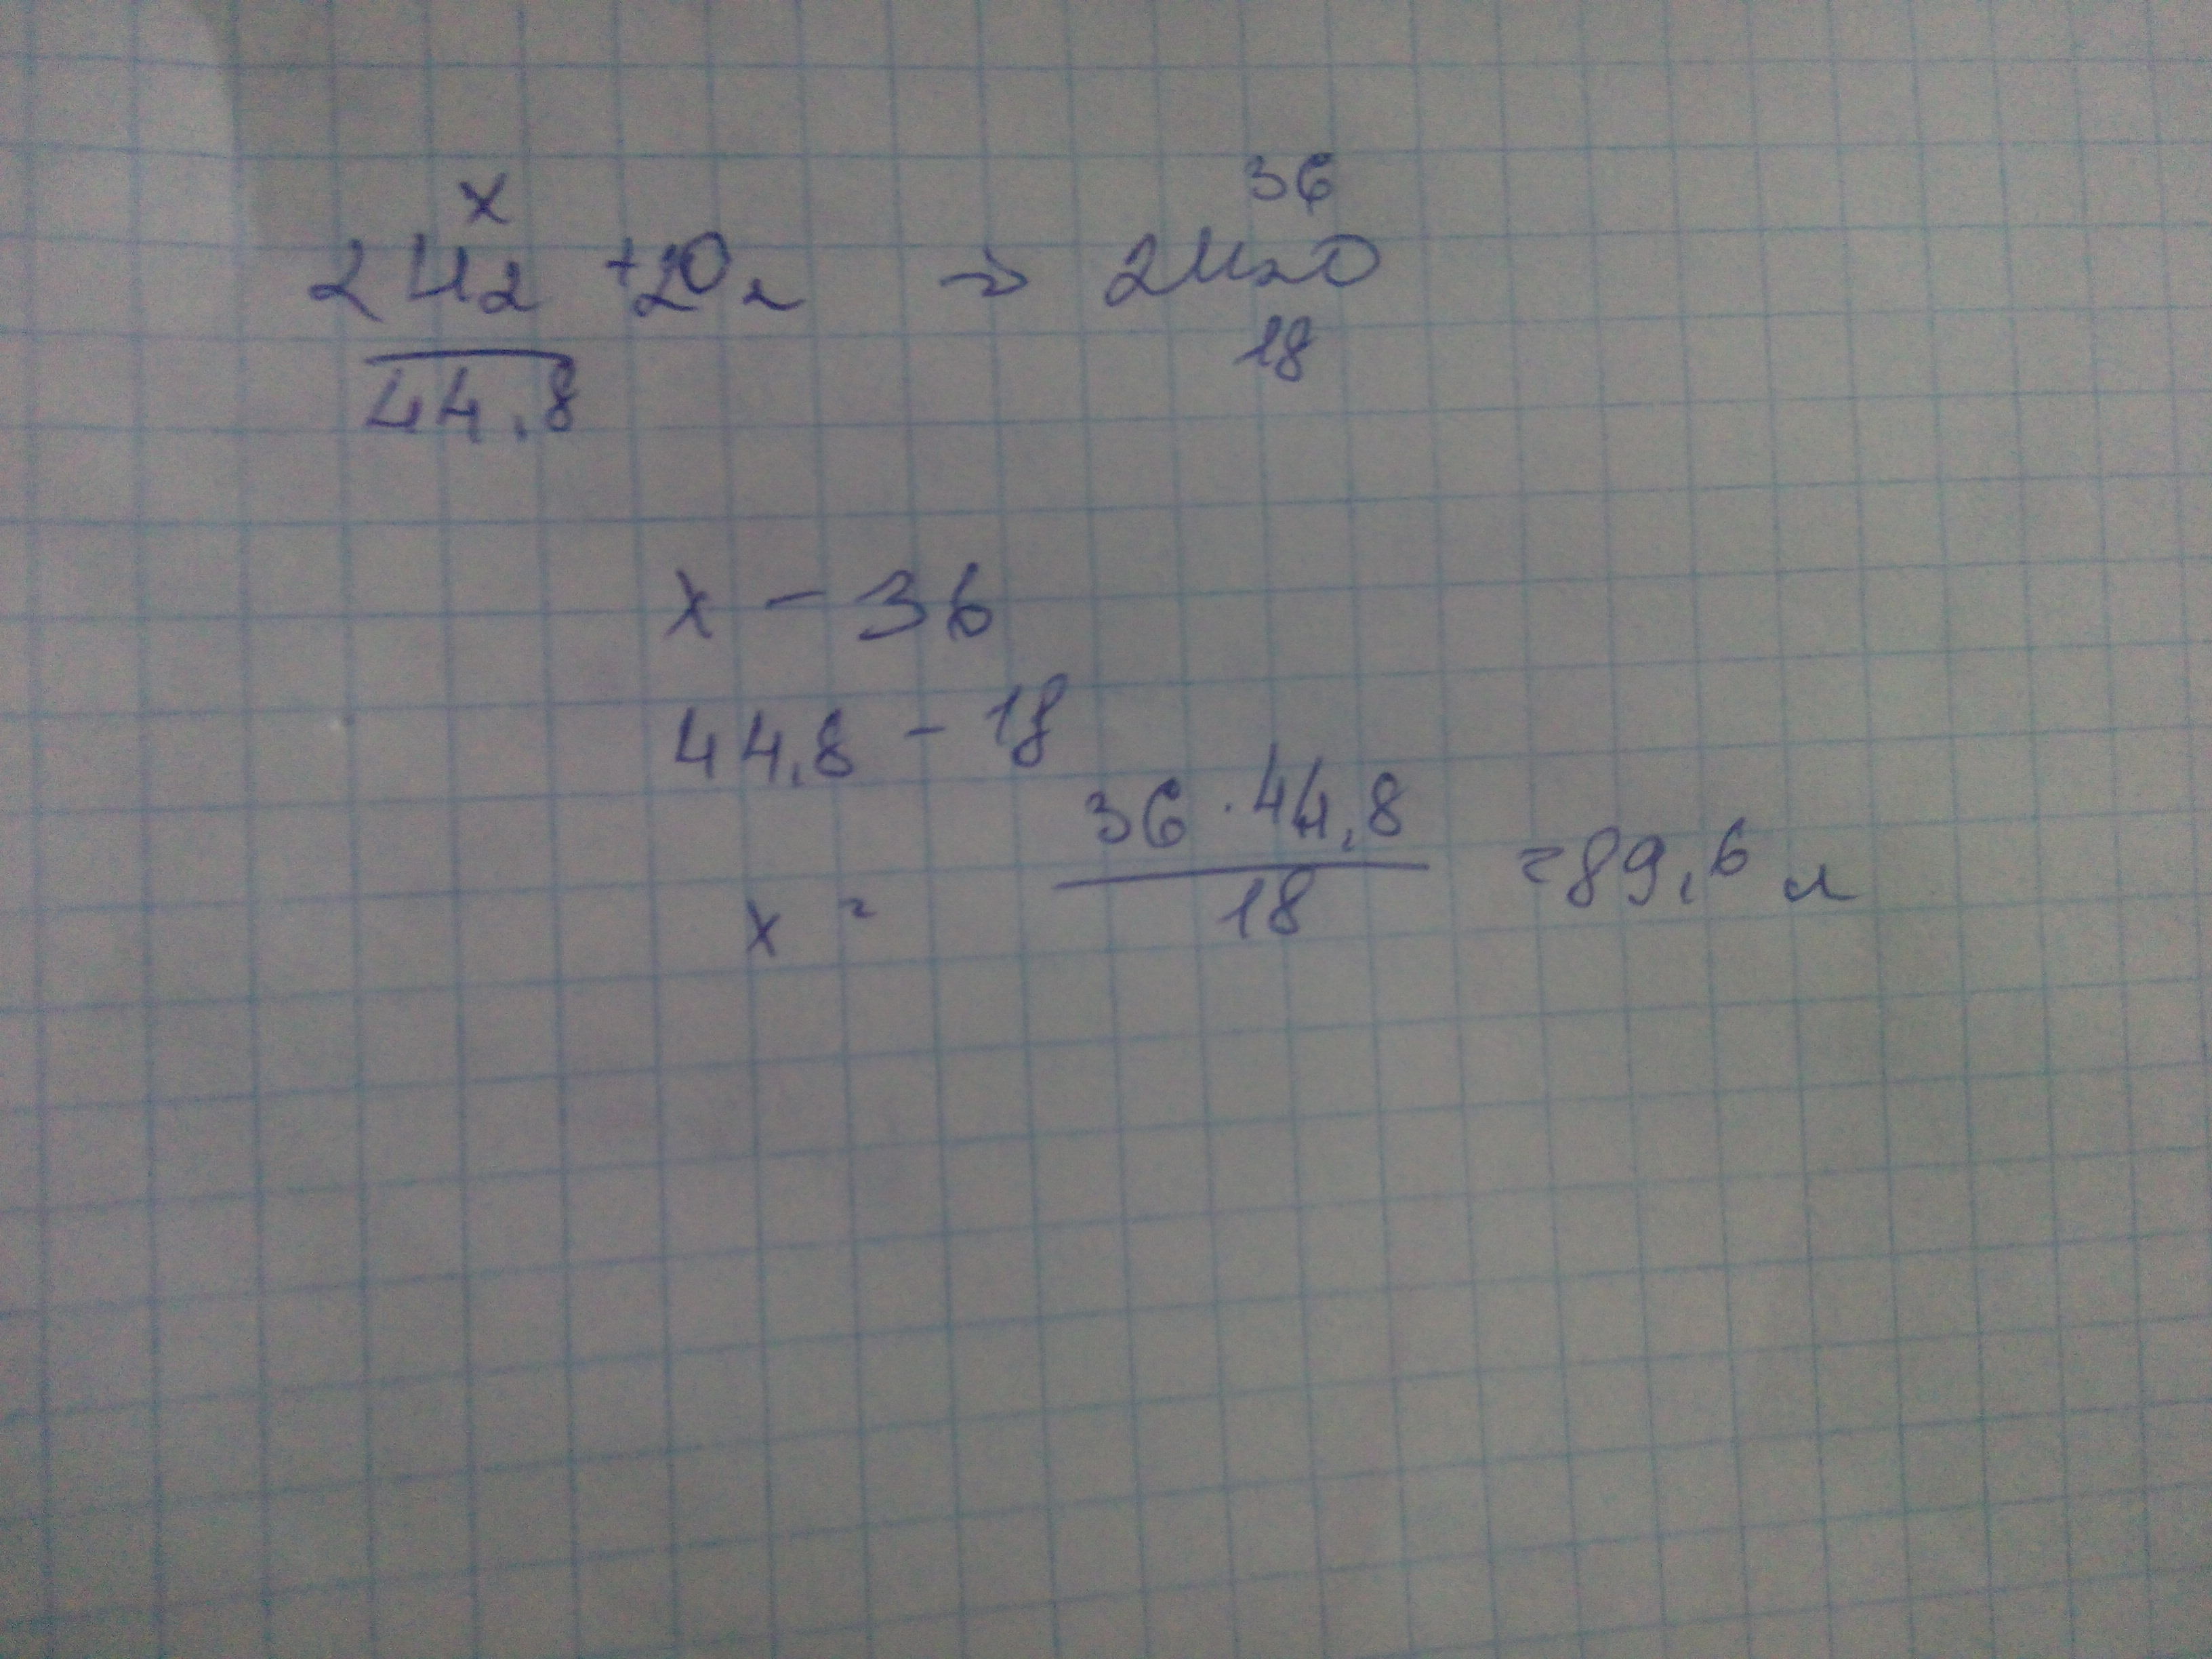 x 36
2H2 +2O2 → 2H2O
44,8 18
x - 36
44,8 - 18
36 · 44,8
x = 18 = 89,6 л